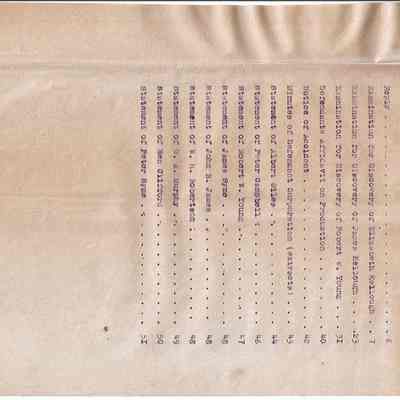 Reply . . . . 6
Examination for Discovery of Elizabeth Kellough . . 7
Examination for Discovery of James Kellough . . . 23
Examination for Discovery of Robert W. Young . . . 31
Defendants Affidavit on Production . . . . 40
Notice of Accident . . . . 42
Minutes of Defendant Corporation (extracts) . . . . 43
Statement of Albert Giles . . . . 44
Statement of Peter Campbell . . . . 46
Statement of Robert W. Young . . . . 47
Statement of James Syme . . . . 48
Statement of John B. James . . . . 48
Statement of W. R. Robertson . . . . 48
Statement of Murphy . . . . 49
Statement of Ben Clifford . . . . 50
Statement of Peter Syme . . . . 51